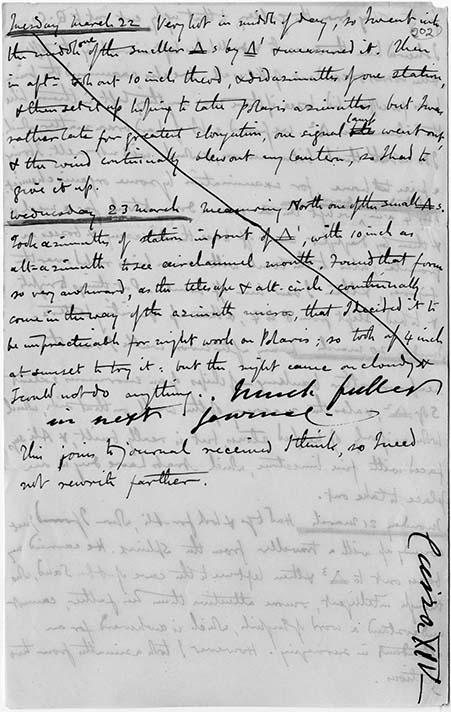 202
Tuesday March 22 Very hot in middle of day, so I went into
the middle one of the smaller Δs by Δ' & measured it. Then
in aftn took out 10 inch theod, & did azimuths of one station,
& then set it up hoping to take Polaris azimuths, but I was
rather late for greatest elongation, one signal lamp went out,
& the wind continually blew out my lantern, so I had to
give it up.
Wednesday 23 March Measuring North one of the small Δs.
Took azimuths of station in front of Δ', with 10 inch as
alt-azimuth to see air channel mouths, found that form
so very awkward, as the telescope & alt. circle continually
come in the way of the azimuth micros, that I decided it to
be impracticable for night work on Polaris; so took up 4 inch
at sunset to try it: but the night came on cloudy &
I could not do anything. Much fuller
in next journal.
This joins to journal received I think, so I need
not rewrite farther.
Cairo XIV